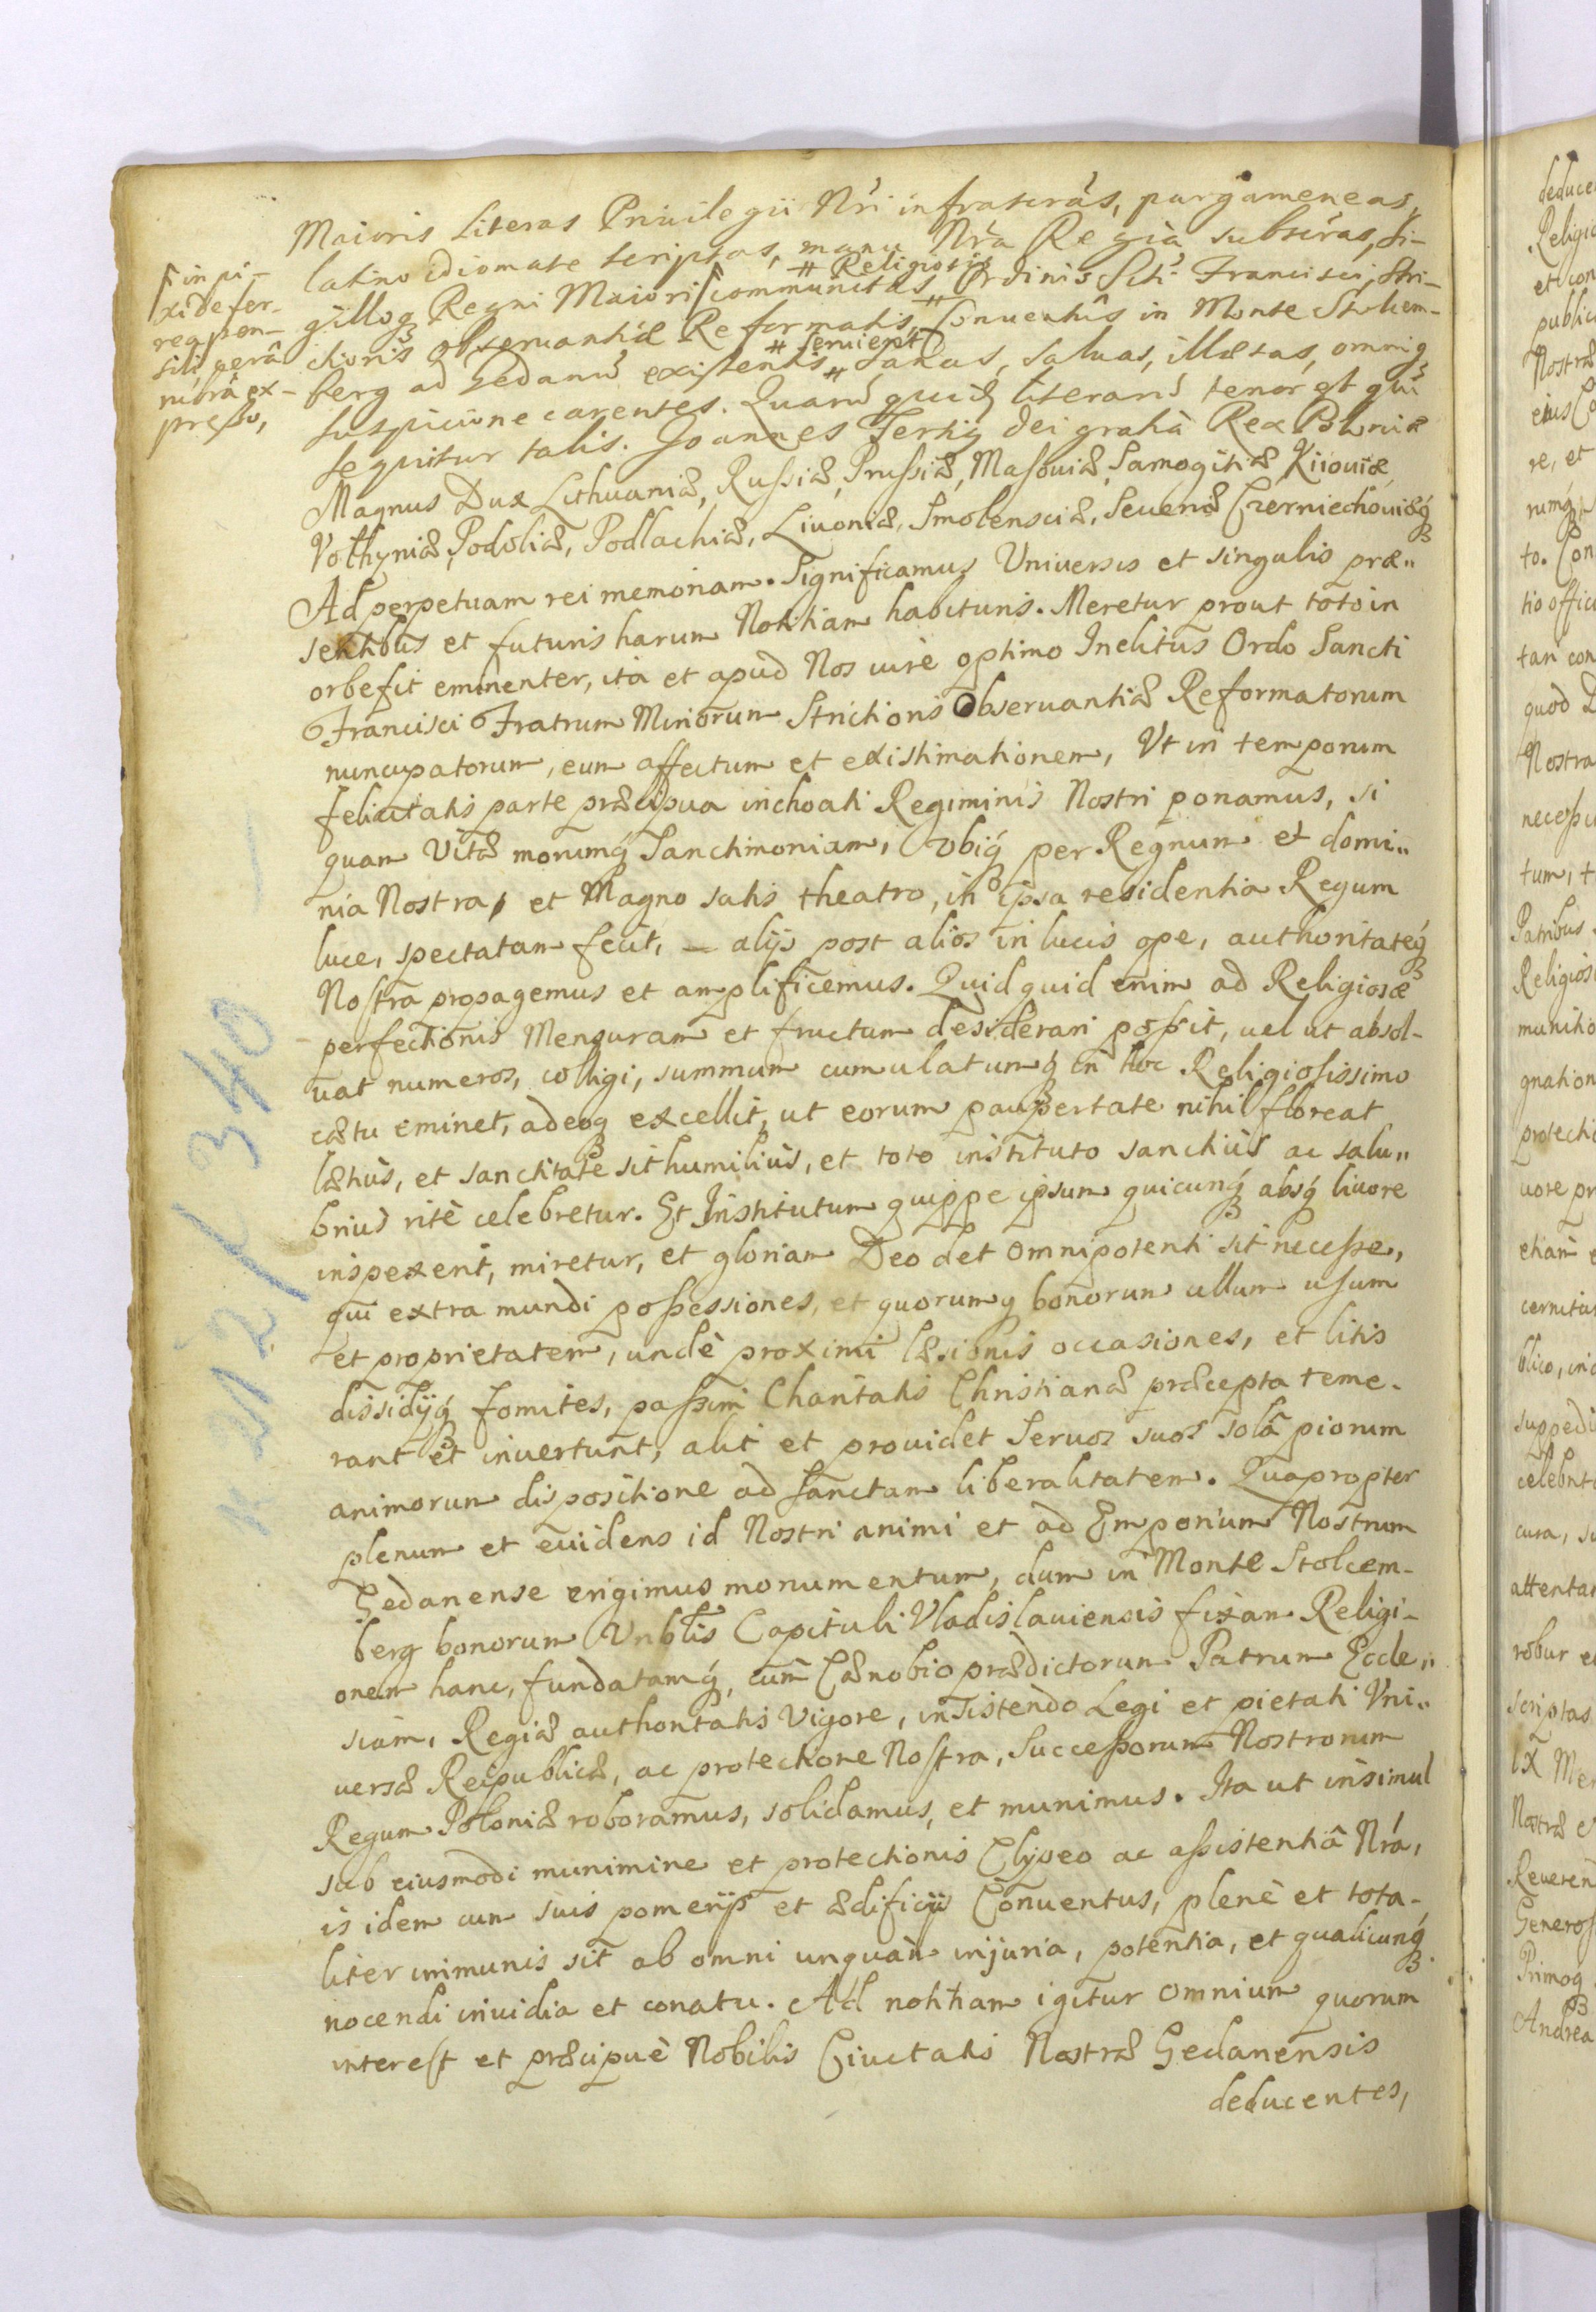 Maioris Literas Priuilegii Nri infrascras, pargameneas,
latino idiomate scriptas, manu Nra Regia subscras, si-
# Religiosis
gilloq Regni Maiori communitas, Ordinis Scti Francisci, Stri-
in pi-
xide fer-
rea pen-
sili cerâ
rubrâ ex-
presso,
ctioris obseruantiæ Reformatis, # Conuentûs in Monte Stolcem-
# seruient
berg ad Gedanu existentis # sanas, saluas, illæsas, omniq
suspicione carentes. Quaru quid literaru tenor est qui
sequitur talis. Joannes Tertiq Dei gratiâ Rex Poloniæ
Magnus Dux Lithuaniæ, Russiæ, Prussiæ, Masouiæ, Samogitiæ Kiiouiæ
Volhyniæ, Podoliæ, Podlachiæ, Liuoniæ, Smolensciæ, Seueriæ Czerniechouiæq
Ad perpetuam rei memoriam. Significamus Uniuersis et singulis præ„
sentibus et futuris harum Notitiam habituris. Meretur prout toto in
orbe fit eminenter, ita et apud Nos iure optimo Inclitus Ordo Sancti
Francisci Fratrum Minorum Strictioris Obseruantiæ Reformatorum
nuncupatorum, eum affectum et existimationem, Vt in temporum
felicitatis parte præcipua inchoati Regiminis Nostri ponamus, si
quam Vitæ morumq Sanctimoniam, Vbiq per Regnum et domi„
nia Nostra, et Magno satis theatro, in ipsa residentia Regum
luce, spectatam fecit, – alijs post alios in lucis ope, authoritateq
Nostra propagemus et amplificemus. Quidquid enim ad Religiosæ
perfectionis Mensuram et fructum desiderari possit, uel ut absol-
uat numeros, colligi, summum cumulatumq in hoc Religiosissimo
cætu eminet, adeoq excellit, ut eorum paupertate nihil floreat
lætiùs, et sanctitate sit humiliùs, et toto instituto sanctiùs ac salu„
briùs ritè celebretur. Et Institutum quippe ipsum quicunq absq liuore
inspexerit, miretur, et gloriam Deo det Omnipotenti sit necesse,
qui extra mundi possessiones, et quorumq bonorum ullum usum
et proprietatem, undè proximi læsionis occasiones, et litis
dissidijq fomites, passim Charitatis Christianæ præcepta teme-
rant et inuertunt, alit et prouidet Seruos suos solâ piorum
animorum dispositione ad sanctam liberalitatem. Quapropter
plenum et euidens id Nostri animi et ad Emporium Nostrum
Gedanense erigimus monumentum, dum in Monte Stolcem-
berg bonorum Vnblis Capituli Vladislauiensis fixam Religi-
onem hanc, fundatamq, cum Cænobio prædictorum Patrum Eccle„
siam, Regiæ authoritatis Vigore, insistendo Legi et pietati Vni„
uersæ Reipublicæ, ac protectione Nostra, Successorum Nostrorum
Regum Poloniæ roboramus, solidamus, et munimus. Ita ut insimul
sub eiusmodi munimine et protectionis Clypeo ac assistentiâ Nra,
is idem cum suis pomerijs et ædificijs Conuentus, plenè et tota-
liter immunis sit ab omni unquam injuria, potentia, et qualicunq
nocendi inuidia et conatu. Ad notitiam igitur Omnium quorum
interest et præcipuè Nobilis Ciuitatis Nostræ Gedanensis
deducentes,